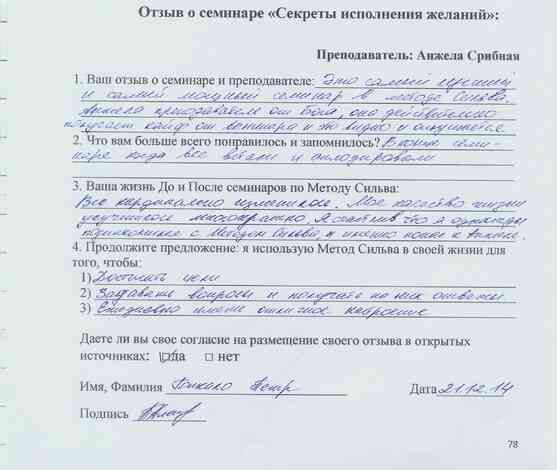 Отзыв о семинаре «Секреты исполнения желаний»:
Преподаватель: Анжела Срибная
1. Ваш отзыв о семинаре и преподавателе: Это самый лучший
и самый мощный семинар в методе Сильва.
Анжела преподаватель от Бога, она действительно
получает кайф от семинара и это видно и ощущается.
2. Что вам больше всего понравилось и запомнилось? В конце семи-
нара когда все встали и аплодировали
3. Ваша жизнь До и После семинаров по Методу Сильва:
Все кардинально изменилось. Мое качество жизни
улучшилось многократно. Я счастлив что я однажды
познакомился с Методом Сильва, и именно попал к Анжеле.
4. Продолжите предложение: я использую Метод Сильва в своей жизни для
того, чтобы:
1) Достигать цели
2) Задавать вопросы и получать на них ответы
3) Ежедневно иметь отличное настроение
Даете ли вы свое согласие на размещение своего отзыва в открытых
источниках: да нет
Имя, Фамилия Петр
Дата 21.12.14
Подпись
78